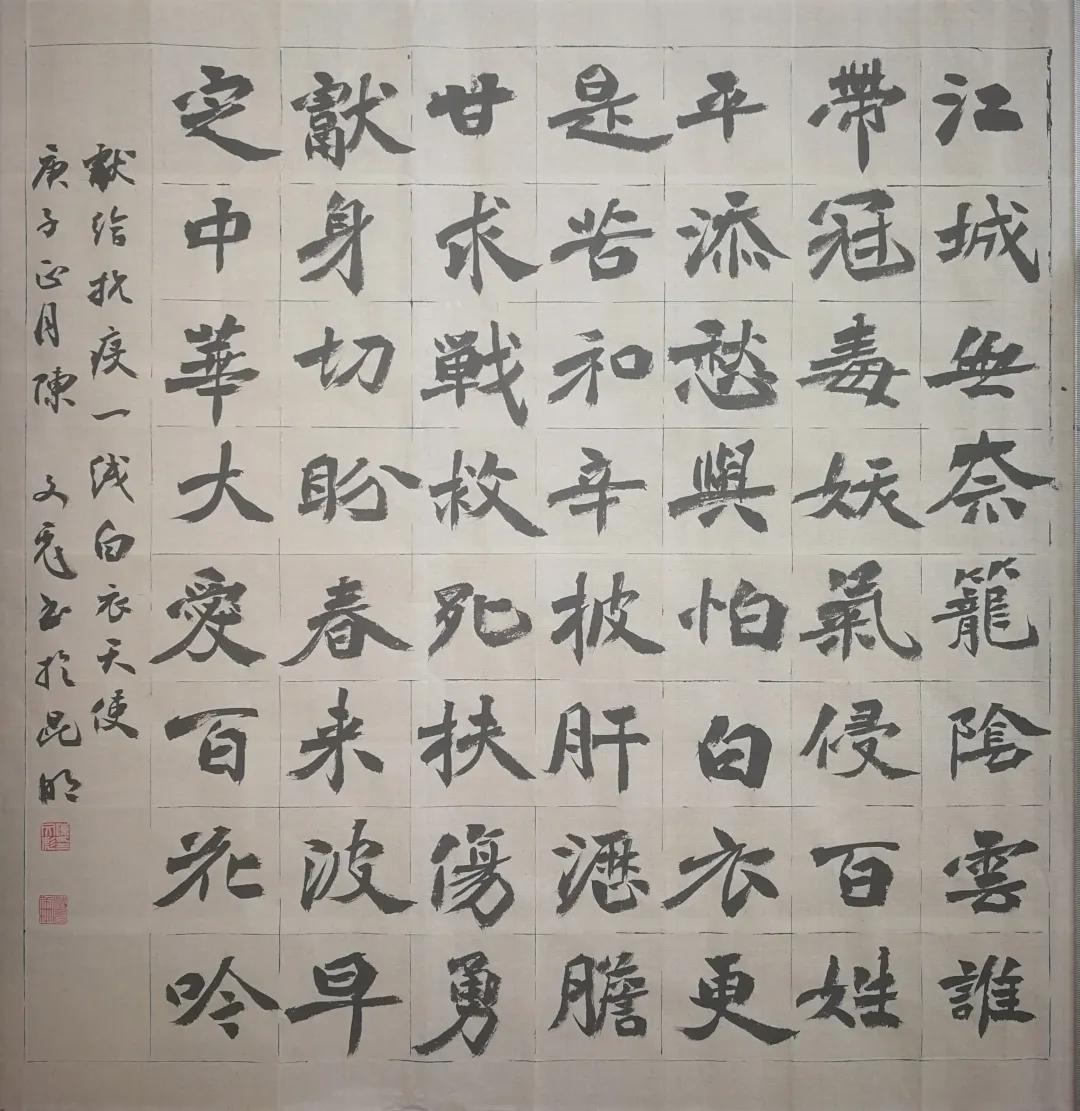 江城無奈籠陰雲誰
帶冠毒妖氣侵百姓
平添愁與怕白衣更
是苦和辛披肝瀝膽
甘求戰救死扶傷勇
獻身切盼春来波早
定中華大愛百花吟
獻给抗疫一线白衣天使
庚子正月陳文书於昆明